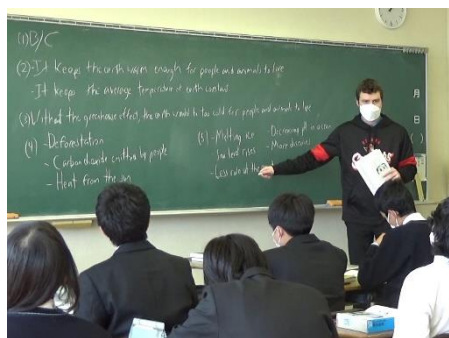 (1) B/C
(2) - It keeps the earth warm enough for people and animals to live
- It keeps the average temperature of earth constant
(3) Without the greenhouse effect, the earth would be too cold for people and animals to live
(4) - Deforestation
- Carbon dioxide emitted by people
- Heat from the sun
(5) - Melting ice
Sea level rises
- Less rain at the
Decreasing pH in ocean
- More diseases
月
日